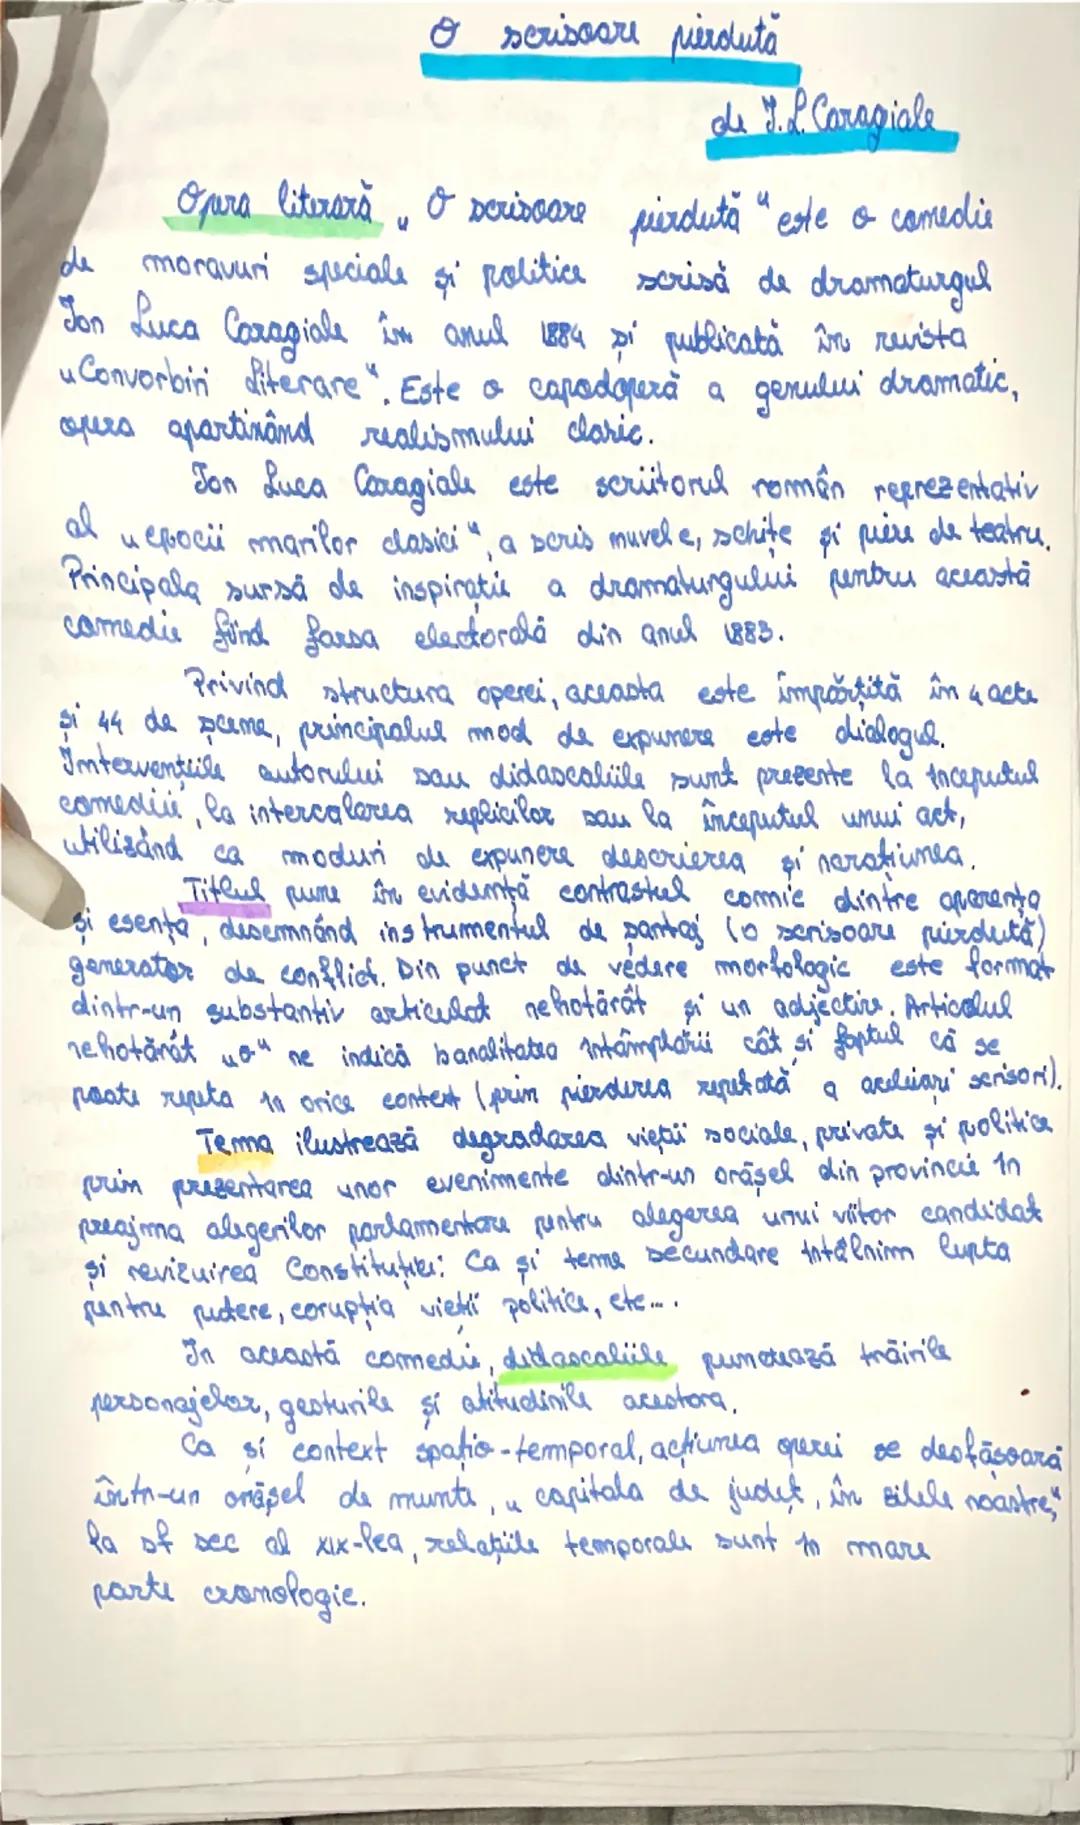 O scrisoare pierdută
de I.L.Caragiale
Opera literară „O scrisoare pierdută" este o comedie
de moravuri speciale și politice scrisă de dramaturgul
Ion Luca Caragiale în anul 1884 și publicată în revista
„Convorbiri literare". Este o capodoperă a genului dramatic,
opera aparținând realismului clasic.
Ion Luca Caragiale este scriitorul român reprezentativ
al „epocii marilor clasici", a scris nuvele, schițe și piese de teatru.
Principala sursă de inspirație a dramaturgului pentru această
comedie fiind farsa electorală din anul 1883.
Privind structura operei, aceasta este împărțită în 4 acte
și 44 de scene, principalul mod de expunere este dialogul.
Intervențiile autorului sau didascaliile sunt prezente la începutul
comediei, la intercalarea replicilor sau la începutul unui act,
utilizând ca moduri de expunere descrierea și narațiunea.
Titlul pune în evidență contrastul comic dintre aparența
și esența, desemnând instrumentul de șantaj (o scrisoare pierdută)
generator de conflict. Din punct de vedere morfologic este format
dintr-un substantiv articulat nehotărât și un adjectiv. Articolul
nehotărât „o" ne indică banalitatea întâmplării cât și faptul că se
poate repeta în orice context (prin pierderea repetată a aceleiași scrisori).
Tema ilustrează degradarea vieții sociale, private și politice
prin prezentarea unor evenimente dintr-un orășel din provincie în
preajma alegerilor parlamentare pentru alegerea unui viitor candidat
și revizuirea Constituției: Ca și teme secundare întâlnim lupta
pentru putere, corupția vieții politice, etc....
In această comedie, didascaliile punctează trăirile
personajelor, gesturile și atitudinile acestora.
Ca și context spațio-temporal, acțiunea operei se desfășoară
într-un orășel de munte, „capitala de județ, în zilele noastre,"
la sf sec al XIX-lea, relațiile temporale sunt în mare
parte cronologic.